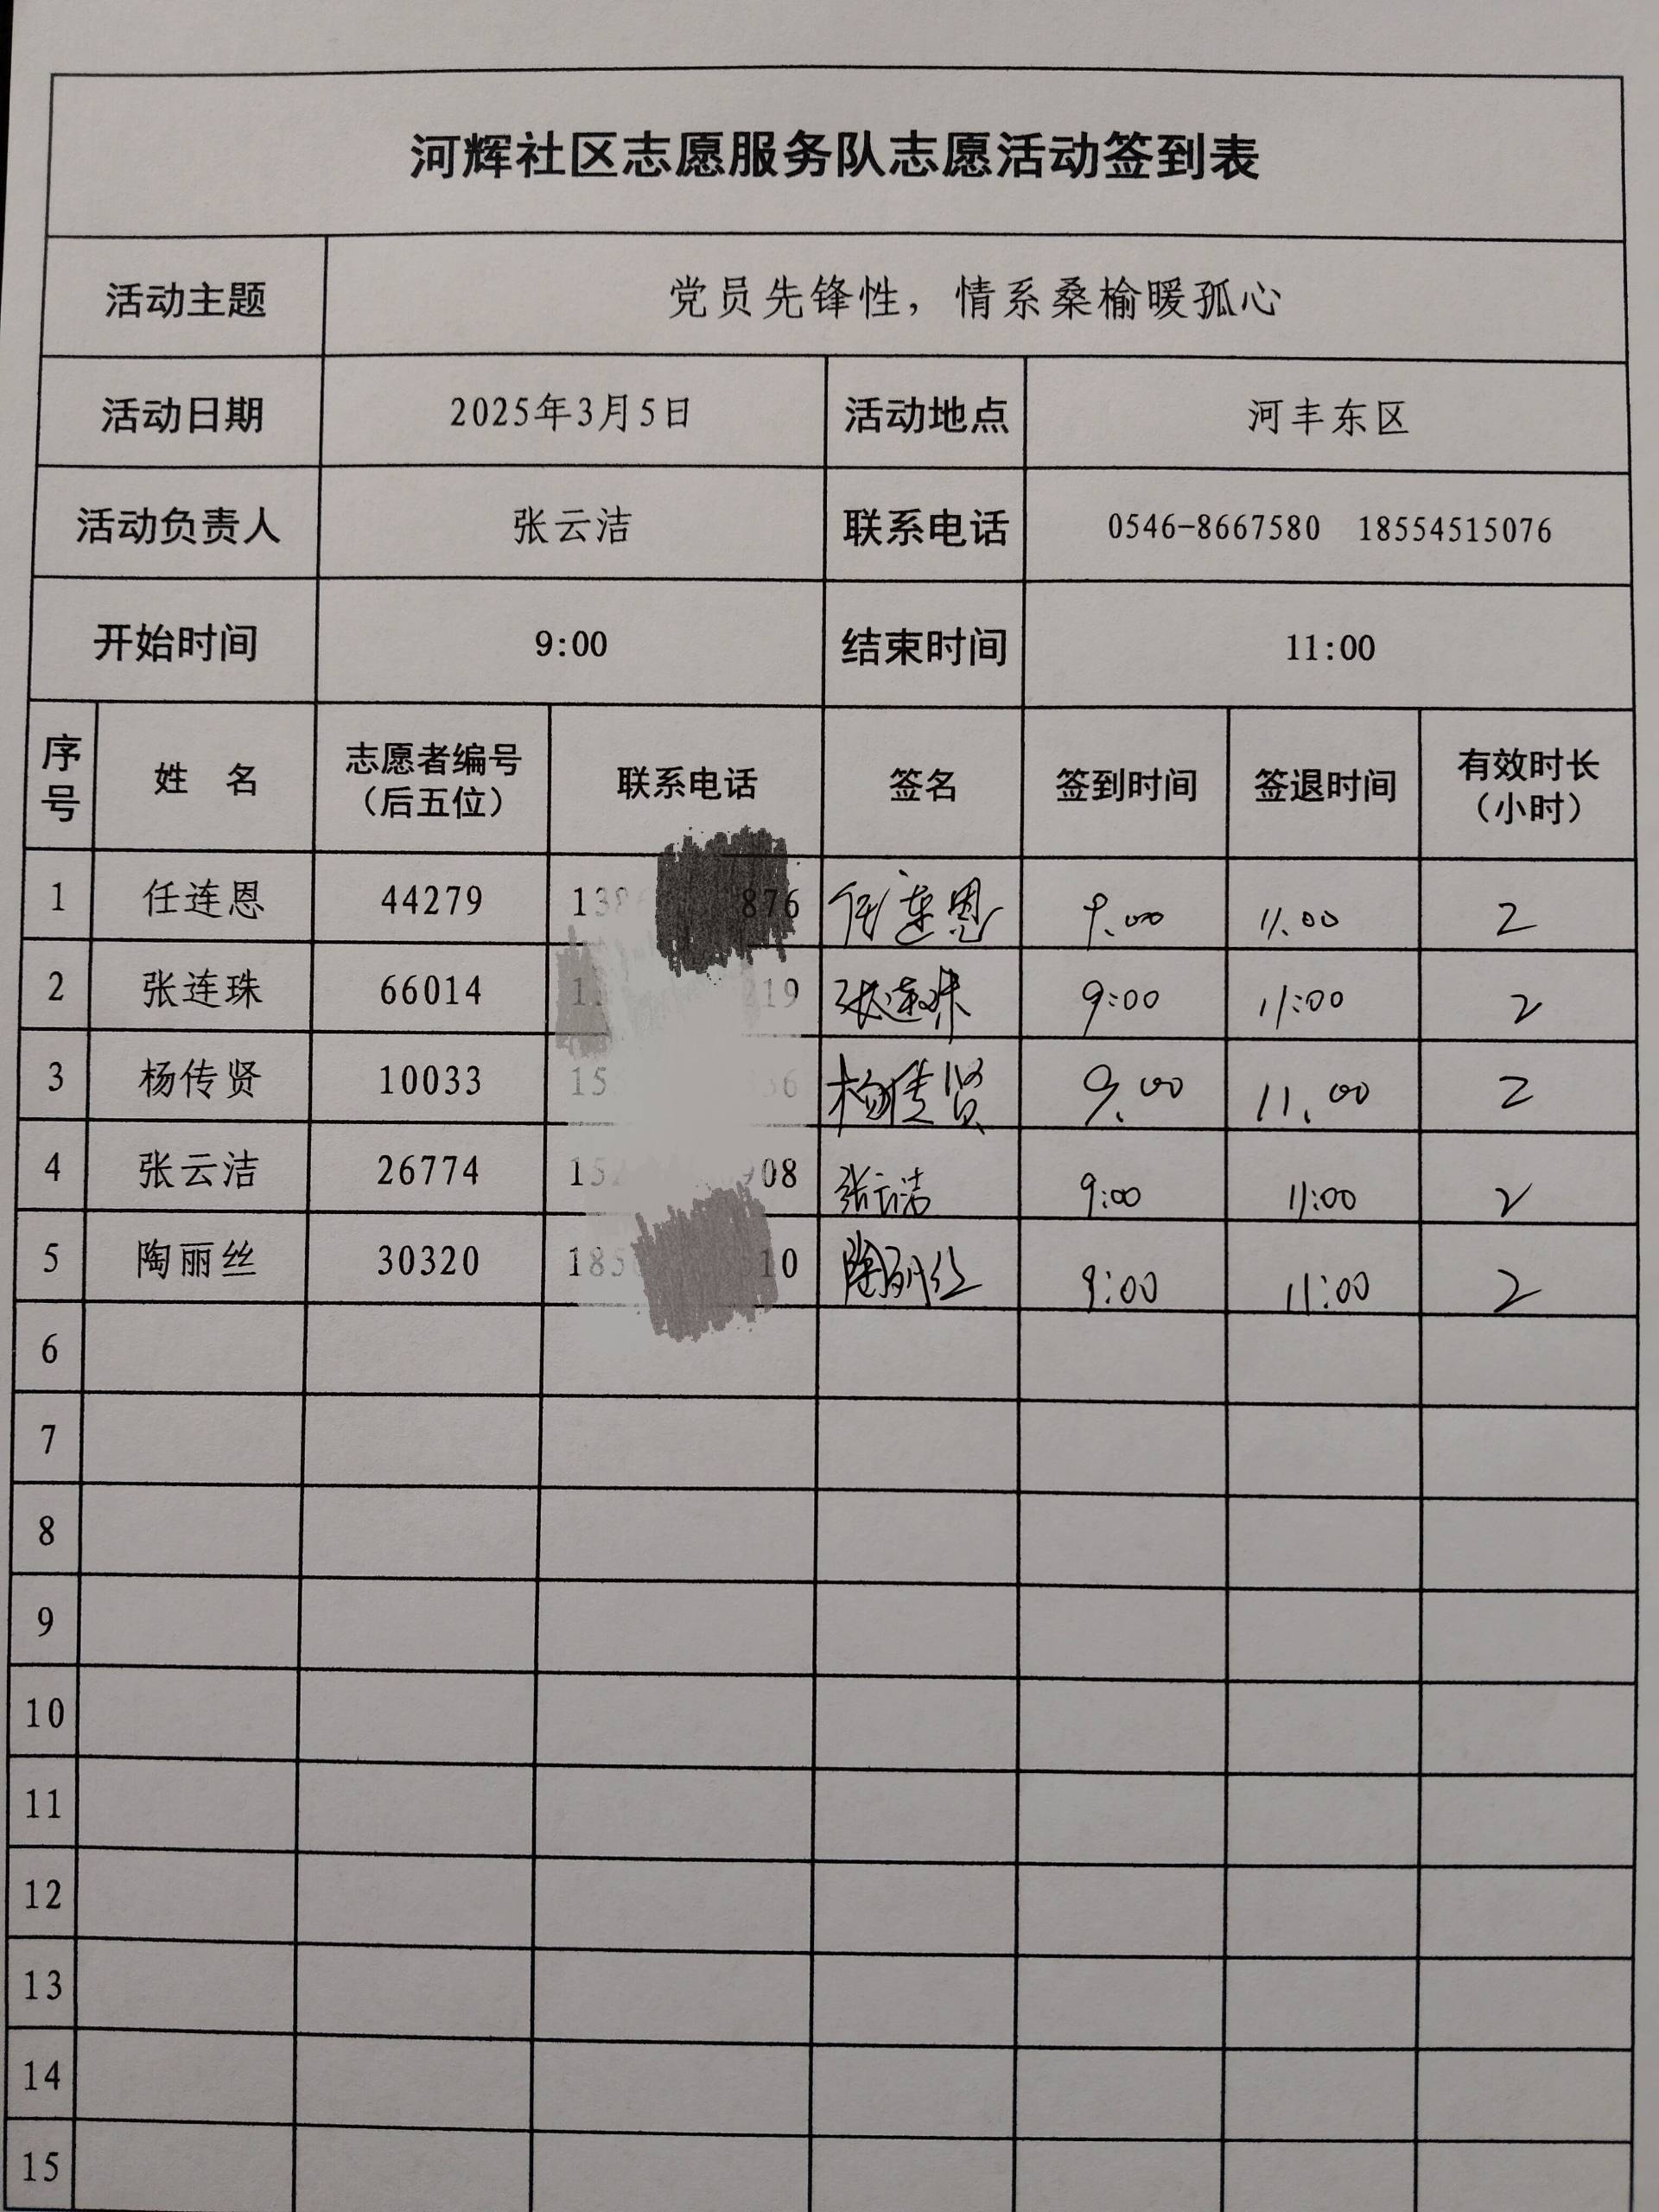 河辉社区志愿服务队志愿活动签到表
活动主题 党员先锋性，情系桑榆暖孤心
活动日期 2025年3月5日 活动地点 河丰东区
活动负责人 张云洁 联系电话 0546-8667580 18554515076
开始时间 9:00 结束时间 11:00
序号 姓 名 志愿者编号（后五位） 联系电话 签名 签到时间 签退时间 有效时长（小时）
1 任连恩 44279 任连恩 9.00 11.00 2
2 张连珠 66014 张连珠 9:00 11:00 2
3 杨传贤 10033 杨传贤 9.00 11.00 2
4 张云洁 26774 张云洁 9:00 11:00 2
5 陶丽丝 30320 陶丽丝 9:00 11:00 2
6
7
8
9
10
11
12
13
14
15